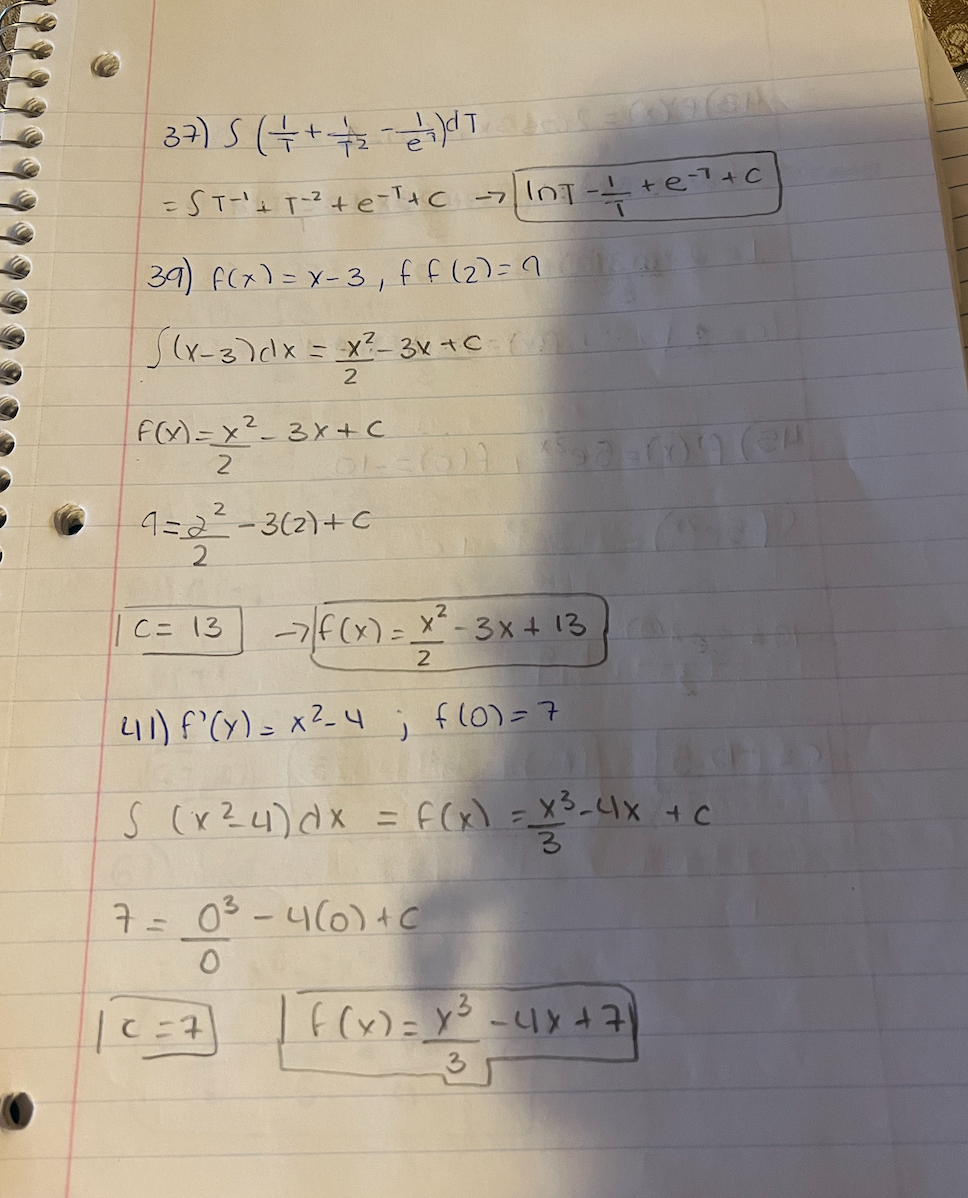 37) ∫ (1/T + 1/T² - 1/eᵀ)dT
= ∫ T⁻¹ + T⁻² + e⁻ᵀ + C → lnT - 1/T + e⁻ᵀ + C
39) f(x) = x - 3, f f(2) = 9
∫(x-3)dx = x²/2 - 3x + C
f(x) = x²/2 - 3x + C
9 = 2²/2 - 3(2) + C
C = 13 → f(x) = x²/2 - 3x + 13
41) f'(y) = x² - 4 ; f(0) = 7
∫ (x² - 4)dx = f(x) = x³/3 - 4x + C
7 = 0³/0 - 4(0) + C
C = 7 f(x) = x³/3 - 4x + 7